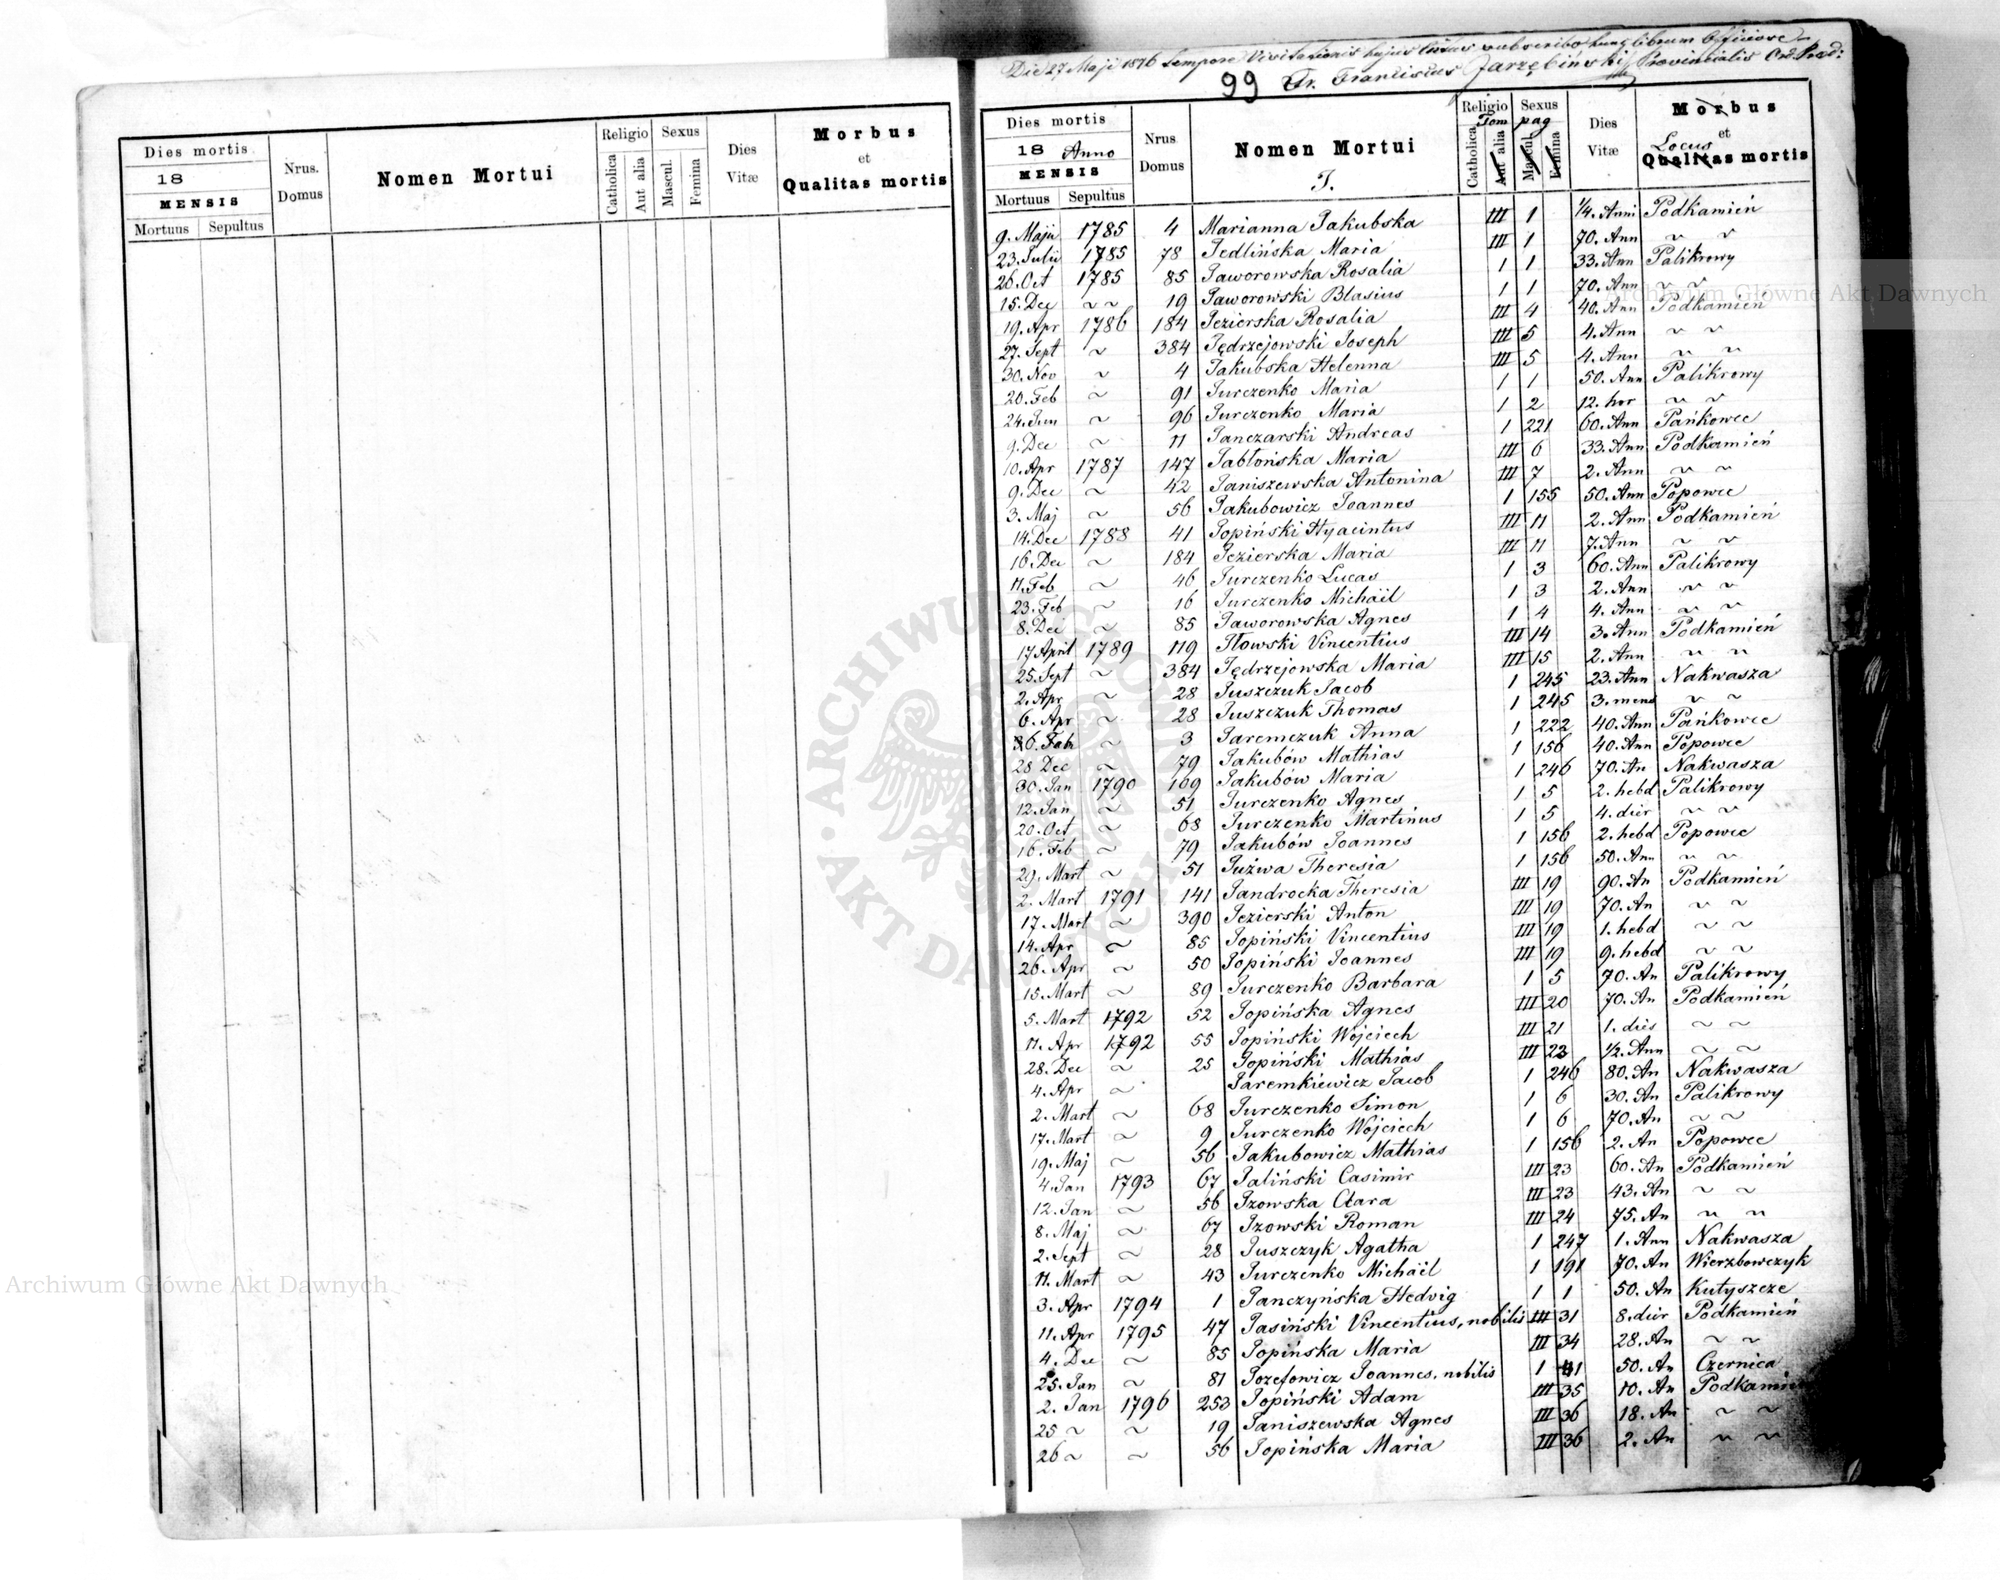 Dies mortis
18
MENSIS
Mortuus Sepultus
Nrus. Domus
Nomen Mortui
Religio
Catholica
Aut alia
Sexus
Mascul.
Femina
Dies Vitæ
Morbus
et
Qualitas mortis
Die 27 Maji 1876 tempore Visitationis hujus subscribo hunc librum Officiose
99 Fr. Franciscus Jarzębiński Provincialis Ord. Præd:
Dies mortis
18 Anno
MENSIS
Mortuus Sepultus
Nrus Domus
Nomen Mortui
J.
Religio
Tom
Catholica
Aut alia
Sexus
pag
Mascul.
Femina
Dies Vitæ
Morbus
et
Locus
Qualitas mortis
9. Maju 1785 4 Marianna Jakubska III 1 1/4. Anni Podkamień
23. Julii 1785 78 Jedlińska Maria III 1 70. Ann ~ ~
26. Oct 1785 85 Jaworowska Rosalia 1 1 33. Ann Palikrowy
15. Dec ~ ~ 19 Jaworowski Blasius 1 1 70. Ann ~ ~
19. Apr 1786 184 Jezierska Rosalia III 4 40. Ann Podkamień
27. Sept ~ 384 Jędrzejowski Joseph III 5 4. Ann ~ ~
30. Nov ~ 4 Jakubska Helenna III 5 4. Ann ~ ~
20. Feb ~ 91 Jurczenko Maria 1 1 50. Ann Palikrowy
24. Jun ~ 96 Jurczenko Maria 1 2 12. hor ~ ~
9. Dec ~ 11 Janczarski Andreas 1 221 60. Ann Pańkowce
10. Apr 1787 147 Jabłońska Maria III 6 33. Ann Podkamień
9. Dec ~ 42 Janiszewska Antonina III 7 2. Ann ~ ~
3. Maj ~ 56 Jakubowicz Joannes 1 155 50. Ann Popowce
14. Dec 1788 41 Jopiński Hyacintus III 11 2. Ann Podkamień
16. Dec ~ 184 Jezierska Maria III 11 7. Ann ~ ~
11. Feb ~ 46 Jurczenko Lucas 1 3 60. Ann Palikrowy
23. Feb ~ 16 Jurczenko Michaïl 1 3 2. Ann ~ ~
8. Dec ~ 85 Jaworowska Agnes 1 4 4. Ann ~ ~
17 April 1789 119 Iłowski Vincentius III 14 3. Ann Podkamień
25. Sept ~ 384 Jędrzejowska Maria III 15 2. Ann ~ ~
2. Apr ~ 28 Juszczuk Jacob 1 245 23. Ann Nakwasza
6. Apr ~ 28 Juszczuk Thomas 1 245 3. mens ~ ~
26. Feb ~ 3 Jaremczuk Anna 1 222 40. Ann Pańkowce
28 Dec ~ 79 Jakubów Mathias 1 156 40. Ann Popowce
30. Jan 1790 169 Jakubów Maria 1 246 70. An Nakwasza
12. Jan ~ 51 Jurczenko Agnes 1 5 2. hebd Palikrowy
20. Oct ~ 68 Jurczenko Martinus 1 5 4. dier ~ ~
16. Feb ~ 79 Jakubów Joannes 1 156 2. hebd Popowce
29. Mart ~ 51 Juźwa Theresia 1 156 50. An ~ ~
2. Mart 1791 141 Jandrocka Theresia III 19 90. An Podkamień
17. Mart ~ 390 Jezierski Anton III 19 70. An ~ ~
14. Apr ~ 85 Jopiński Vincentius III 19 1. hebd ~ ~
26. Apr ~ 50 Jopiński Joannes III 19 9. hebd ~ ~
15. Mart ~ 89 Jurczenko Barbara 1 5 70. An Palikrowy
5. Mart 1792 52 Jopińska Agnes III 20 70. An Podkamień
11. Apr 1792 55 Jopiński Wojciech III 21 1. dies ~ ~
28. Dec ~ 25 Jopiński Mathias III 23 1/2. Ann ~ ~
4. Apr ~ Jaremkiewicz Jacob 1 246 80. An Nakwasza
2. Mart ~ 68 Jurczenko Simon 1 6 30. An Palikrowy
17. Mart ~ 9 Jurczenko Wojciech 1 6 70. An ~ ~
19. Maj ~ 56 Jakubowicz Mathias 1 156 2. An Popowce
4. Jan 1793 67 Jaliński Casimir III 23 60. An Podkamień
12. Jan ~ 56 Izowska Clara III 23 43. An ~ ~
8. Maj ~ 67 Izowski Roman III 24 75. An ~ ~
2. Sept ~ 28 Juszczyk Agatha 1 247 1. Ann Nakwasza
11. Mart ~ 43 Jurczenko Michaïl 1 191 70. An Wierzbowczyk
3. Apr 1794 1 Janczyńska Hedvig 1 1 50. An Kutyszcze
11. Apr 1795 47 Jasiński Vincentius, nobilis III 31 8. dier Podkamień
4. Dec ~ 85 Jopińska Maria III 34 28. An ~ ~
25. Jan ~ 81 Jozefowicz Joannes, nobilis 1 41 50. An Czernica
2. Jan 1796 253 Jopiński Adam III 35 10. An Podkamień
25 ~ ~ 19 Janiszewska Agnes III 36 18. An ~ ~
26 ~ ~ 56 Jopińska Maria III 36 2. An ~ ~
Archiwum Główne Akt Dawnych
Archiwum Główne Akt Dawnych
ARCHIWUM GŁÓWNE AKT DAWNYCH